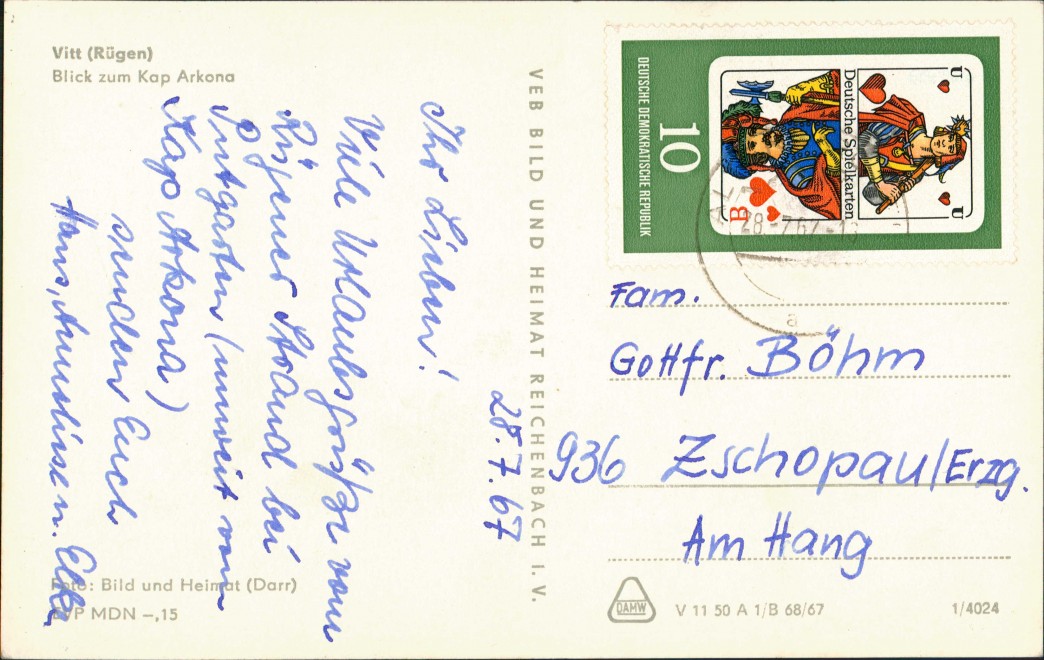 Vitt (Rügen)
Blick zum Kap Arkona
28.7.67
Ihr Lieben!
Viele Urlaubsgrüße vom
Rügener Strand bei
Putgarten (unweit vom
Kap Arkona)
senden Euch
Hans, Anneliese u. Elke
Foto: Bild und Heimat (Darr)
EVP MDN –,15
VEB BILD UND HEIMAT REICHENBACH I. V.
DEUTSCHE DEMOKRATISCHE REPUBLIK
10
Deutsche Spielkarten
B
U
U
28.-7.67.-1
a
Fam.
Gottfr. Böhm
936 Zschopau/Erzg.
Am Hang
DAMW
V 11 50 A 1/B 68/67
1/4024